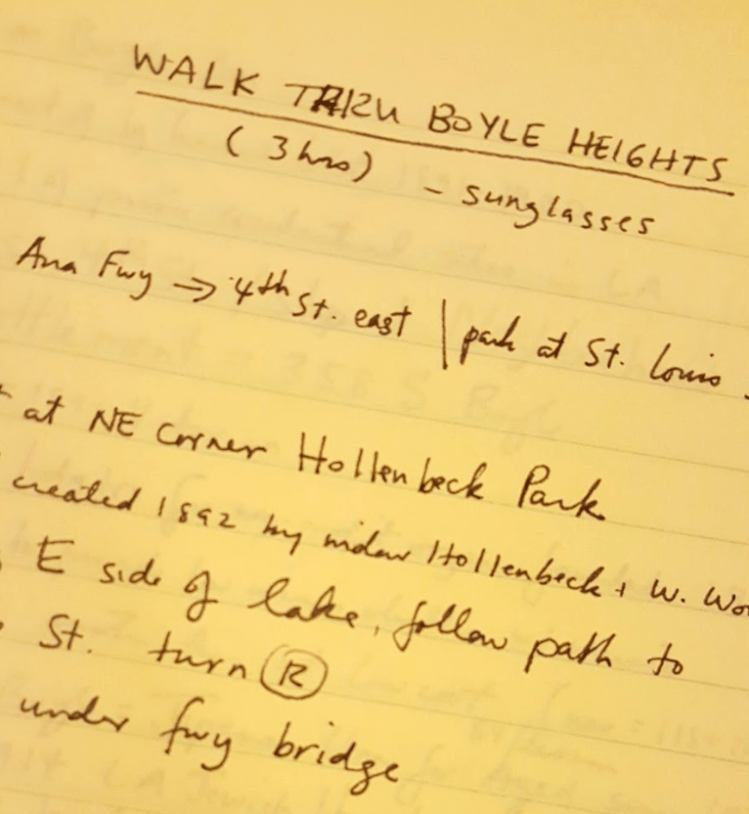 WALK THRU BOYLE HEIGHTS
(3 hrs) - sunglasses
Ana Fwy → 4th St. east | park at St. Louis
at NE corner Hollenbeck Park
created 1892 by widow Hollenbeck + W. Wor
E side of lake, follow path to
St. turn R
under fwy bridge